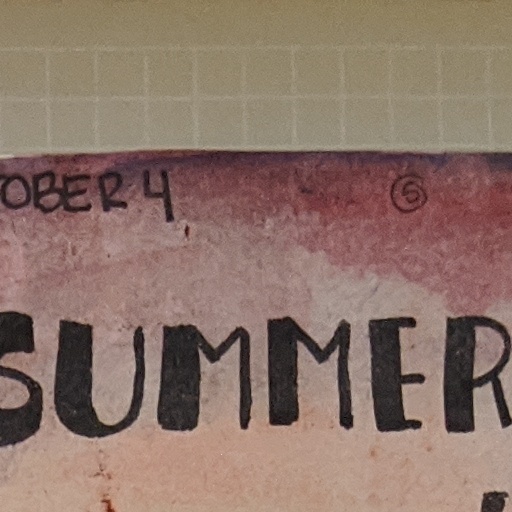 TOBER 4 ⑤
SUMMER